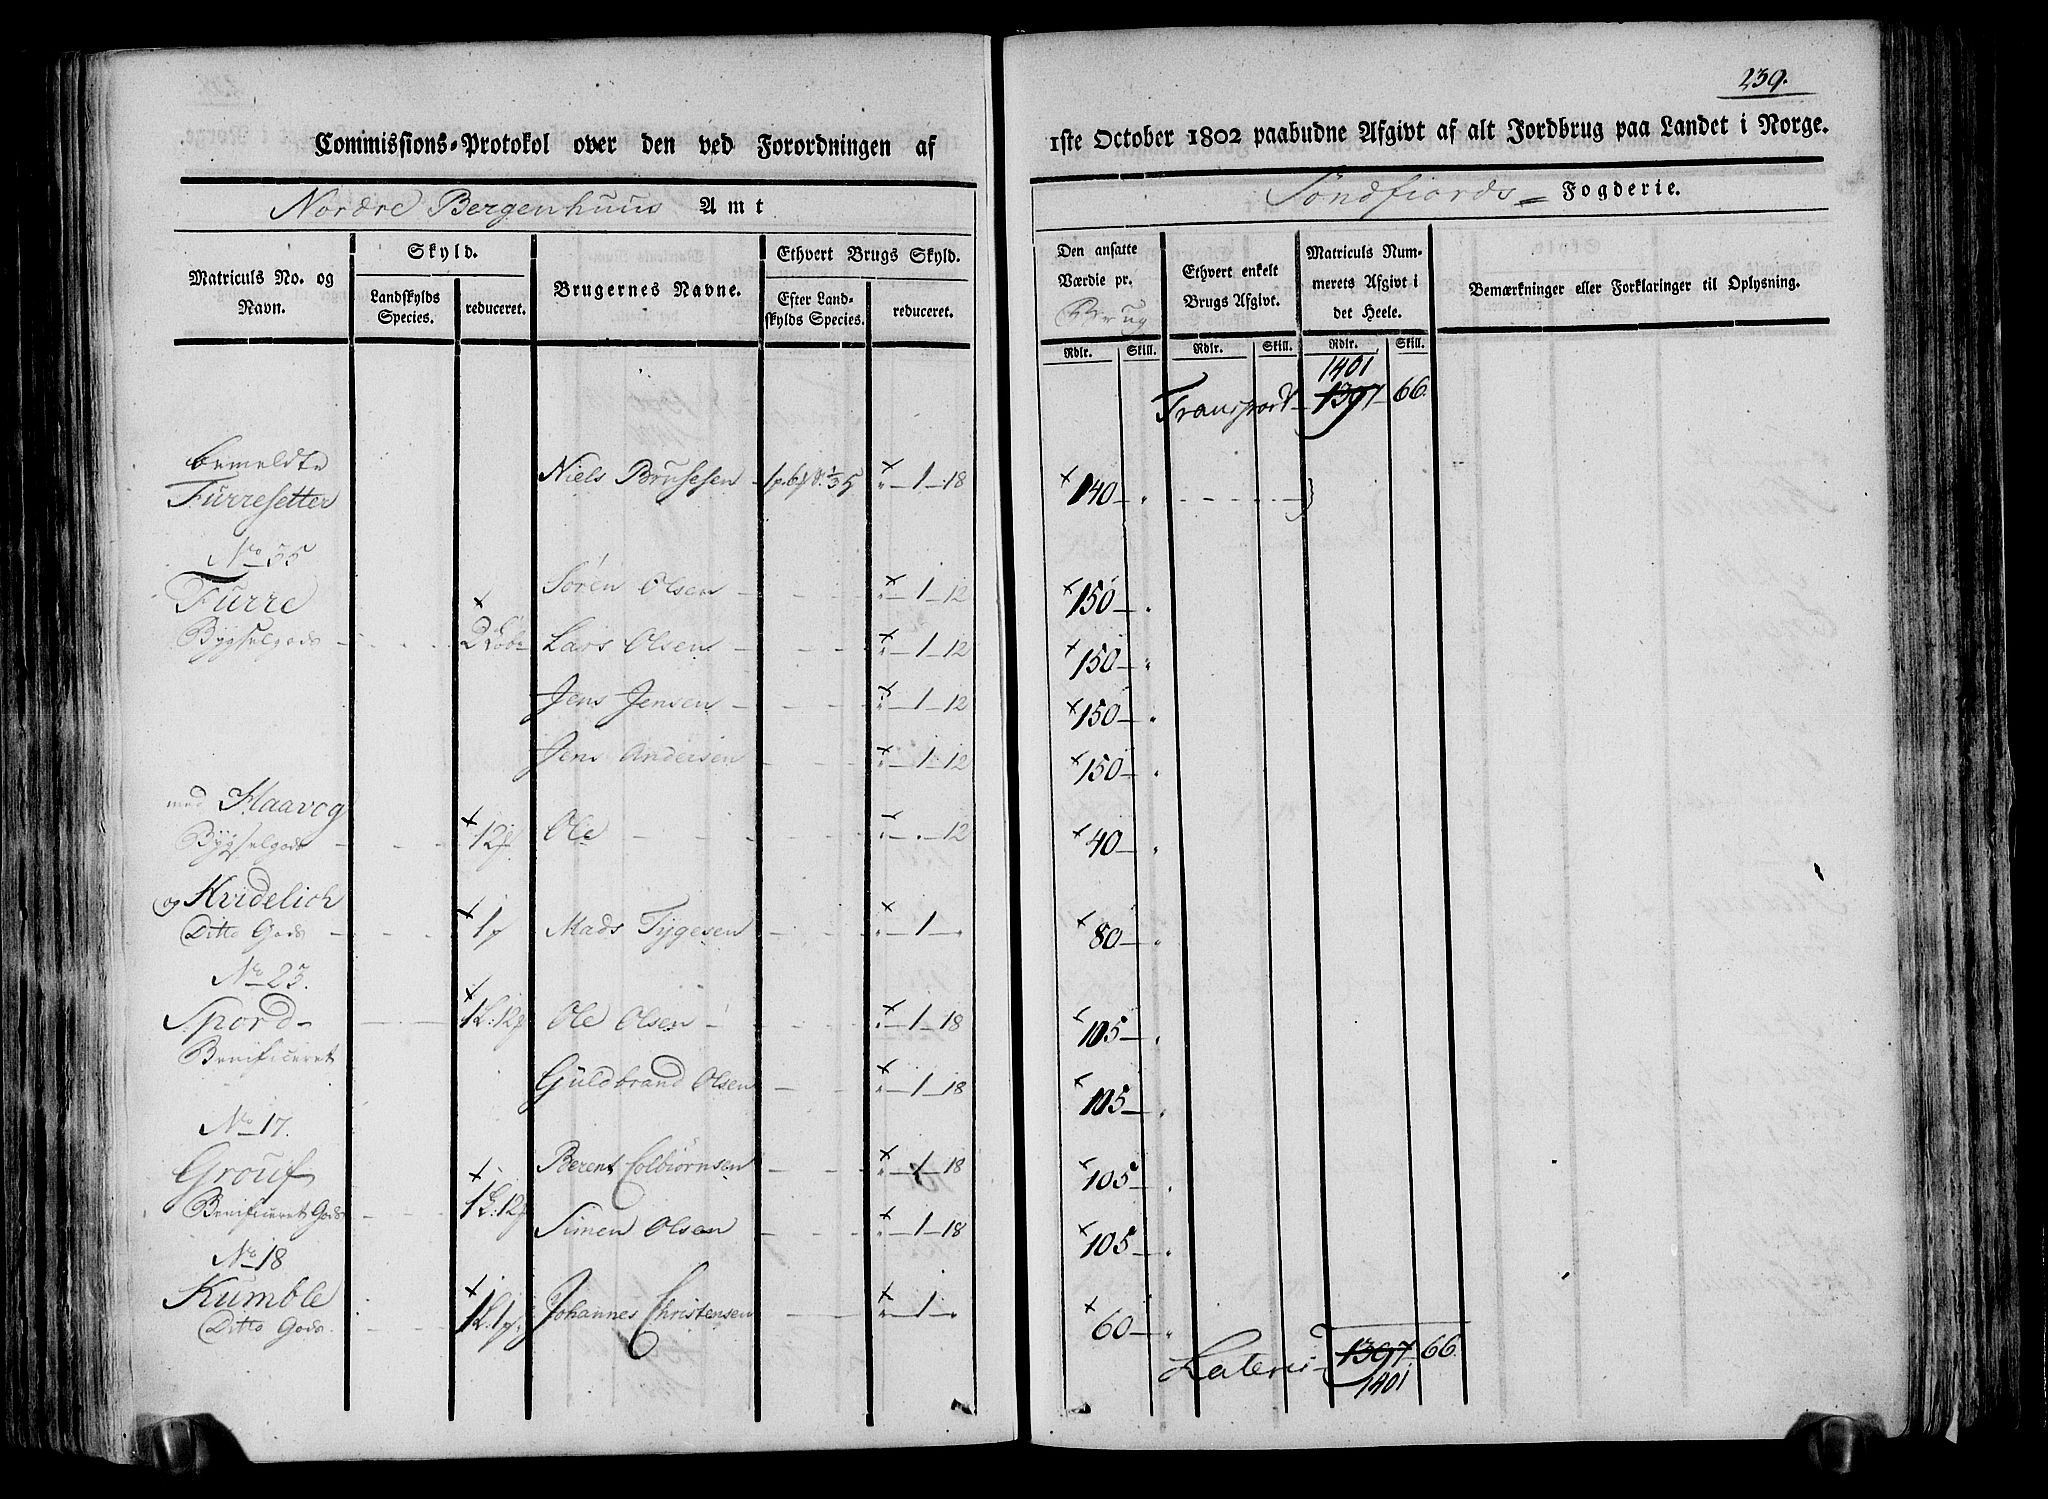 239.
Commissions-Protokol over den ved Forordningen af 1ste October 1802 paabudne Afgivt af alt Jordbrug paa Landet i Norge.
Nordre Bergenhuus Amt
Söndfiords Fogderie.
Matriculs No. og Navn.
Skyld.
Landskylds Species.
reduceret.
Brugernes Navne.
Ethvert Brugs Skyld.
Efter Landskylds Species.
reduceret.
Den ansatte Værdie pr. Brug
Ethvert enkelt Brugs Afgivt.
Matriculs Nummerets Afgivt i det Heele.
Bemærkninger eller Forklaringer til Oplysning.
Rdlr. Skill. Rdlr. Skill. Rdlr. Skill.
1401
Transport 1397 66
bemeldte
Furresetter Niels Brusesen 1 18 140
No 35
Furre Sören Olsen 1 12 150
Bygselgods Lars Olsen 1 12 150
Jens Jensen 1 12 150
Jens Andersen 1 12 150
med Haavog
Bygselgods 12 Ole 12 40
og Kvidelich
Ditto Gods 1 Mads Tygesen 1 80
No 23.
Spord 1 L: 12 Ole Olsen 1 18 105
Benificeret
Guldbrand Olsen 1 18 105
No 17.
Grouf Berent Colbiörnsen 1 18 105
Benificeret Gods 1 L: 12 Simen Olsen 1 18 105
No 18
Kumble
Ditto Gods. 1 L. 1 Johannes Christensen 1 60
Lateris 1397 66
1401